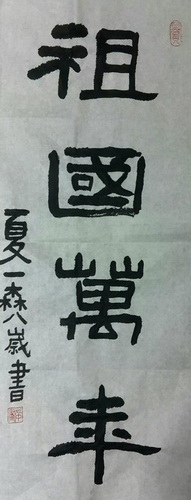 祖國萬年
夏一森八歲書